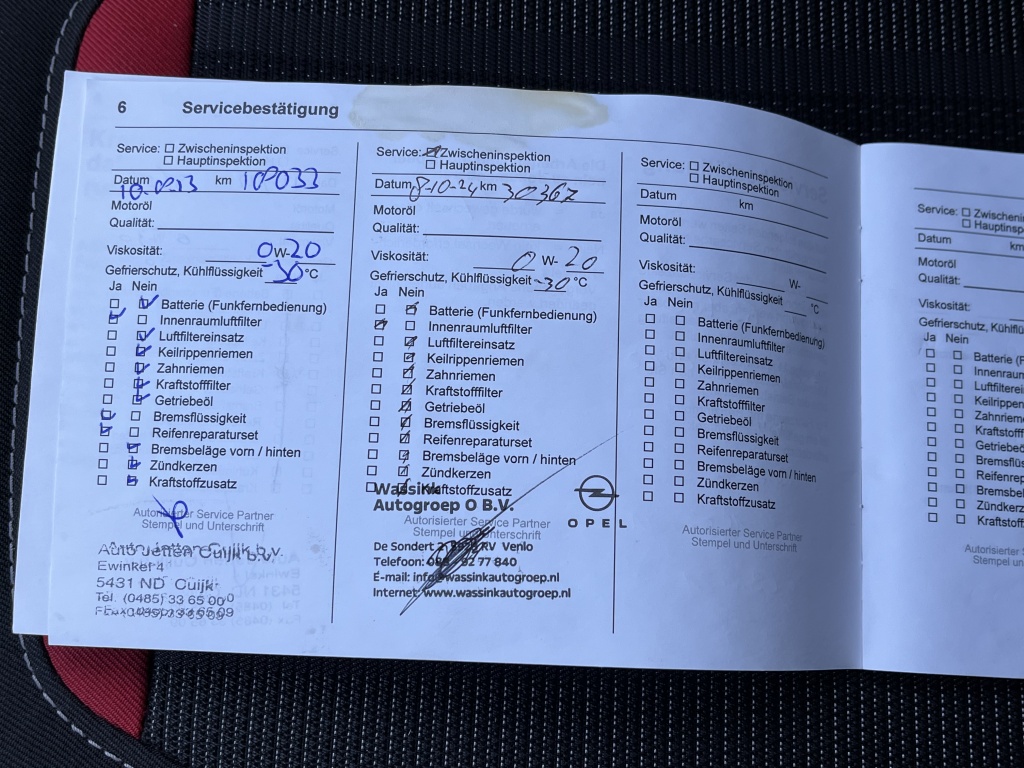 6 Servicebestätigung
Service: Zwischeninspektion
Hauptinspektion
Datum km
Motoröl
Qualität:
Viskosität: 0W-20
Gefrierschutz, Kühlflüssigkeit -30 °C
Ja Nein
Batterie (Funkfernbedienung)
Innenraumluftfilter
Luftfiltereinsatz
Keilrippenriemen
Zahnriemen
Kraftstofffilter
Getriebeöl
Bremsflüssigkeit
Reifenreparaturset
Bremsbeläge vorn / hinten
Zündkerzen
Kraftstoffzusatz
Autorisierter Service Partner
Stempel und Unterschrift
Auto Cuijk b.v.
Ewinkel 4
5431 ND Cuijk
Tel. (0485) 33 65 00
Service: Zwischeninspektion
Hauptinspektion
Datum 8-10-24 km 30367
Motoröl
Qualität:
Viskosität: 0 W- 20
Gefrierschutz, Kühlflüssigkeit -30 °C
Ja Nein
Batterie (Funkfernbedienung)
Innenraumluftfilter
Luftfiltereinsatz
Keilrippenriemen
Zahnriemen
Kraftstofffilter
Getriebeöl
Bremsflüssigkeit
Reifenreparaturset
Bremsbeläge vorn / hinten
Zündkerzen
Kraftstoffzusatz
Wassink
Autogroep O B.V.
OPEL
Autorisierter Service Partner
Stempel und Unterschrift
De Sondert RV Venlo
Telefoon: 92 77 840
E-mail: info@wassinkautogroep.nl
Internet: www.wassinkautogroep.nl
Service: Zwischeninspektion
Hauptinspektion
Datum km
Motoröl
Qualität:
Viskosität: W-
Gefrierschutz, Kühlflüssigkeit °C
Ja Nein
Batterie (Funkfernbedienung)
Innenraumluftfilter
Luftfiltereinsatz
Keilrippenriemen
Zahnriemen
Kraftstofffilter
Getriebeöl
Bremsflüssigkeit
Reifenreparaturset
Bremsbeläge vorn / hinten
Zündkerzen
Kraftstoffzusatz
Autorisierter Service Partner
Stempel und Unterschrift
Service: Zwischeninspe
Hauptinspekt
Datum km
Motoröl
Qualität:
Viskosität:
Gefrierschutz, Kühlflüssi
Ja Nein
Batterie (F
Innenraum
Luftfiltere
Keilrippen
Zahnrieme
Kraftstofff
Getriebeö
Bremsflüs
Reifenrep
Bremsbel
Zündkerz
Kraftstoff
Autorisierter S
Stempel un